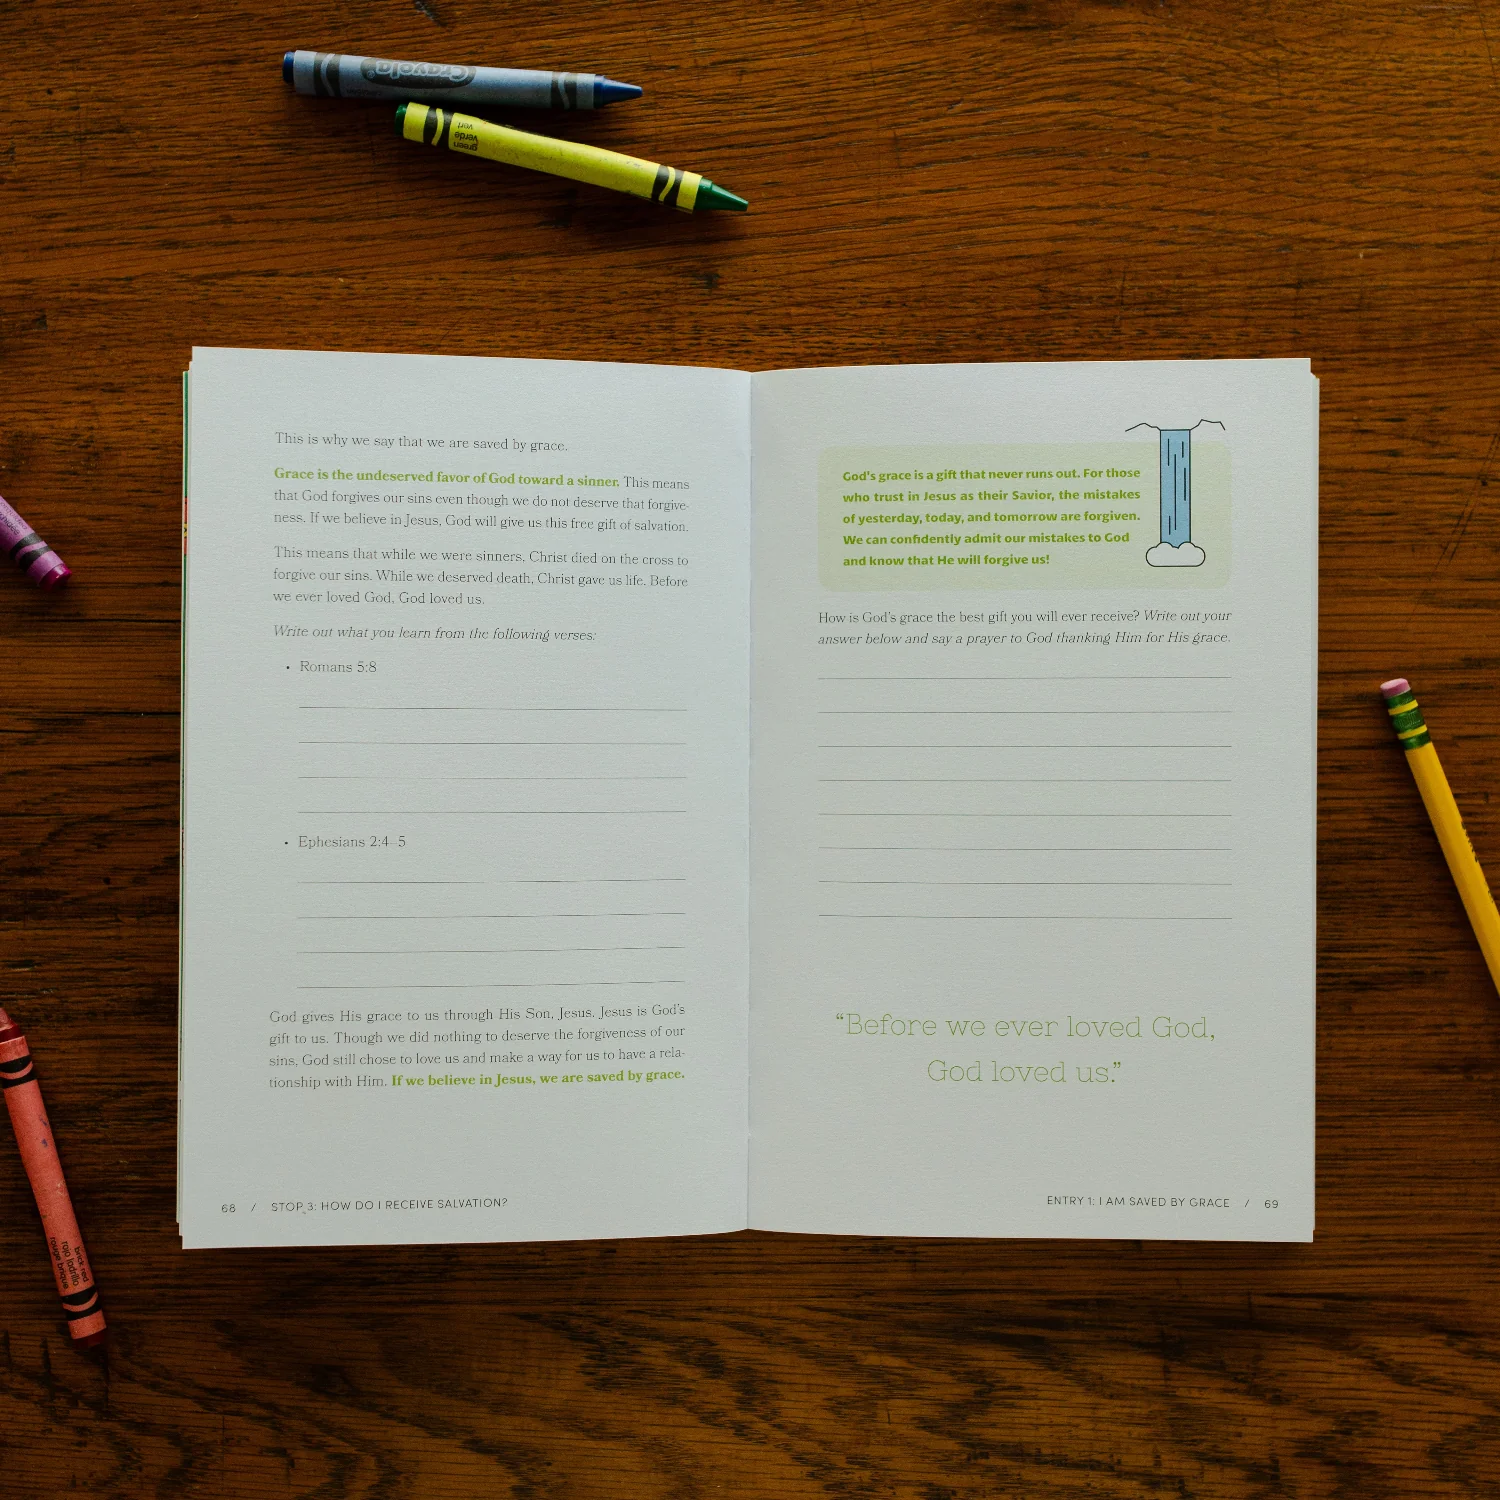 Crayola
green
verde
vert
This is why we say that we are saved by grace.
Grace is the undeserved favor of God toward a sinner. This means
that God forgives our sins even though we do not deserve that forgive-
ness. If we believe in Jesus, God will give us this free gift of salvation.
This means that while we were sinners, Christ died on the cross to
forgive our sins. While we deserved death, Christ gave us life. Before
we ever loved God, God loved us.
Write out what you learn from the following verses:
• Romans 5:8
• Ephesians 2:4–5
God gives His grace to us through His Son, Jesus. Jesus is God's
gift to us. Though we did nothing to deserve the forgiveness of our
sins, God still chose to love us and make a way for us to have a rela-
tionship with Him. If we believe in Jesus, we are saved by grace.
68 / STOP 3: HOW DO I RECEIVE SALVATION?
God's grace is a gift that never runs out. For those
who trust in Jesus as their Savior, the mistakes
of yesterday, today, and tomorrow are forgiven.
We can confidently admit our mistakes to God
and know that He will forgive us!
How is God's grace the best gift you will ever receive? Write out your
answer below and say a prayer to God thanking Him for His grace.
“Before we ever loved God,
God loved us.”
ENTRY 1: I AM SAVED BY GRACE / 69
brick red
rojo ladrillo
rouge brique